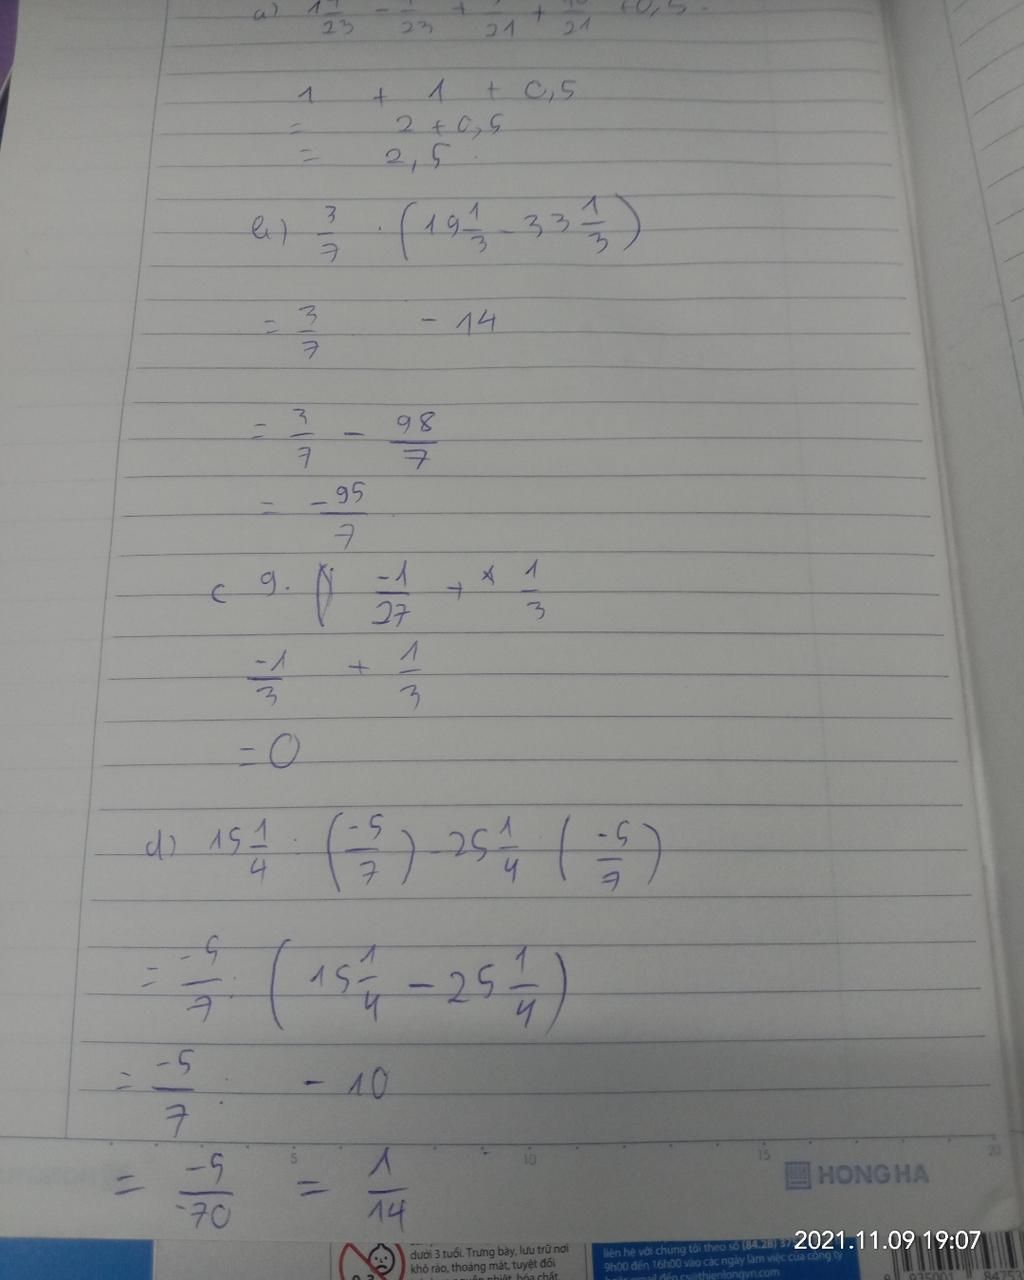 a) 1 4/23 - 4/23 + 5/21 + 16/21 + 0,5.
1 + 1 + 0,5
= 2 + 0,5
= 2,5
b) 3/7 . (19 1/3 - 33 1/3)
= 3/7 - 14
= 3/7 - 98/7
= -95/7
c 9. -1/27 + 1/3
-1/3 + 1/3
= 0
d) 15 1/4 . (-5/7) - 25 1/4 . (-5/7)
= -5/7 . (15 1/4 - 25 1/4)
= -5/7 . - 10
= -5/-70 = 1/14
5 10 15 20
HONG HA
dưới 3 tuổi. Trưng bày, lưu trữ nơi
khô ráo, thoáng mát, tuyệt đối
liên hệ với chúng tôi theo số (84.28) 37
9h00 đến 16h00 vào các ngày làm việc của công ty
2021.11.09 19:07